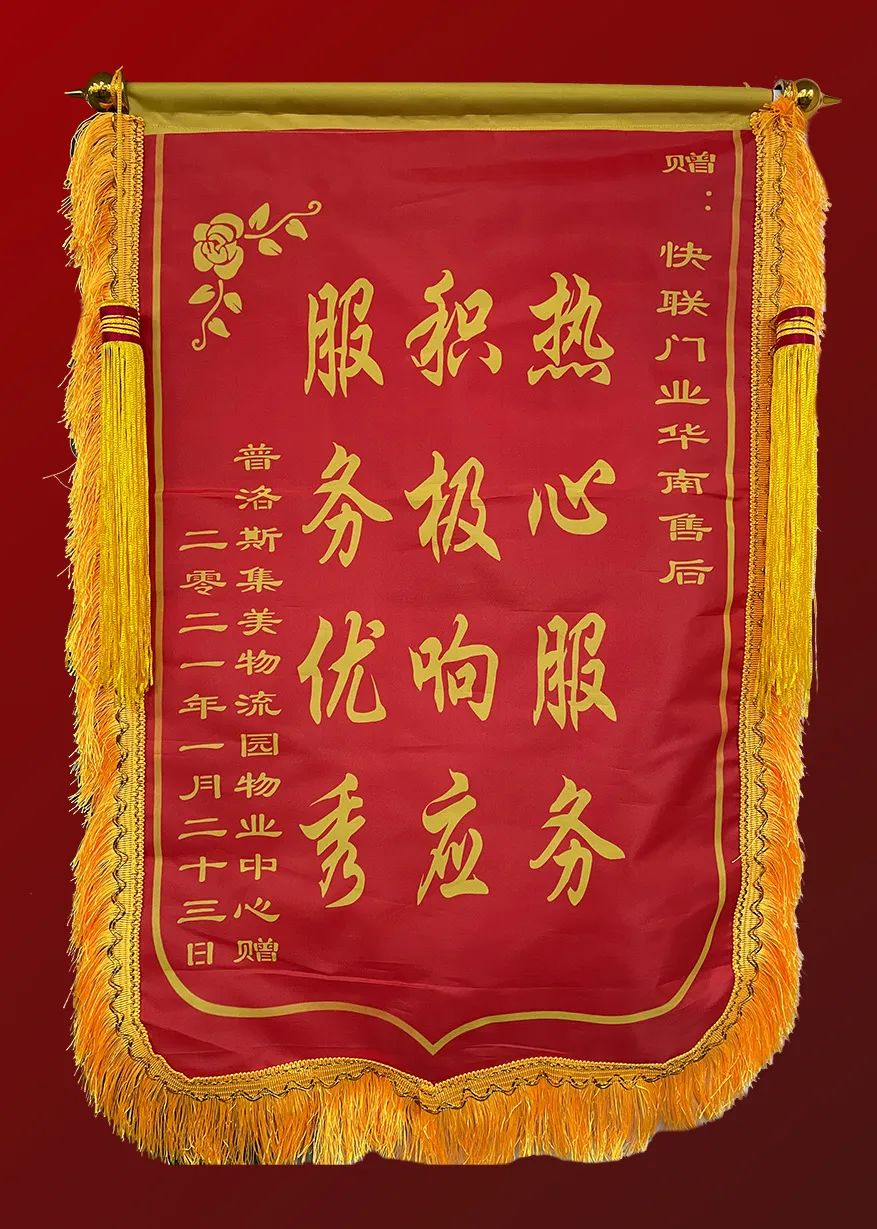 赠：快联门业华南售后
热心服务
积极响应
服务优秀
普洛斯集美物流园物业中心赠
二零二一年一月二十三日